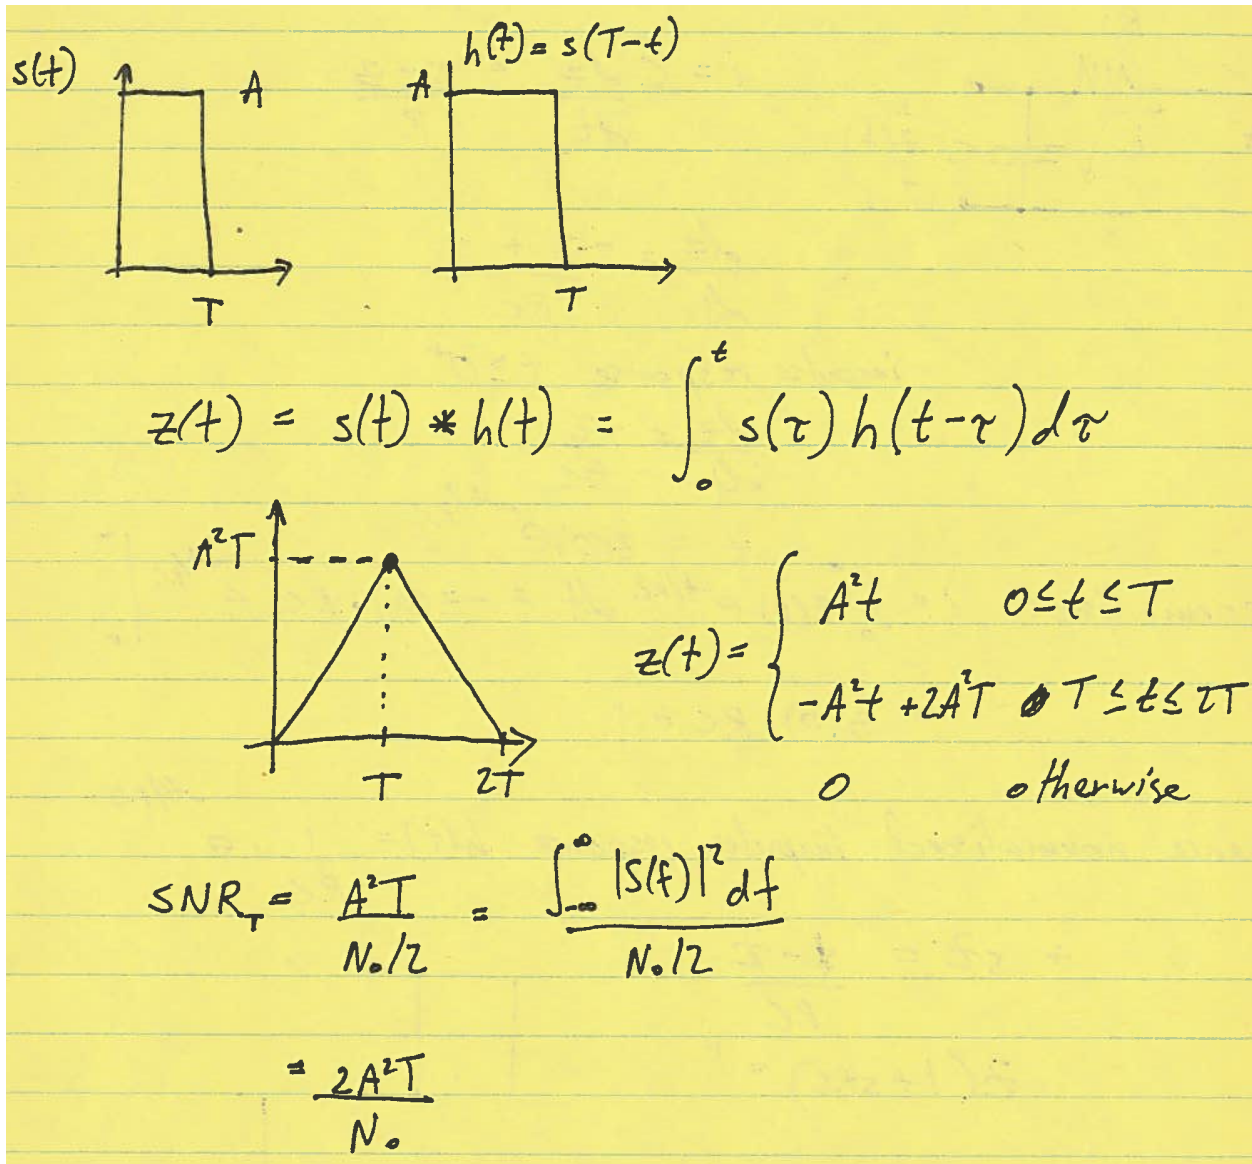 s(t) A A h(t) = s(T-t)
T T
z(t) = s(t) * h(t) = ∫₀ᵗ s(τ) h(t-τ) dτ
A²T
z(t) = { A²t 0 ≤ t ≤ T
-A²t + 2A²T T ≤ t ≤ 2T
0 otherwise
T 2T
SNR_T = A²T / N₀/2 = ∫_{-∞}^{∞} |S(f)|² df / N₀/2
= 2A²T / N₀